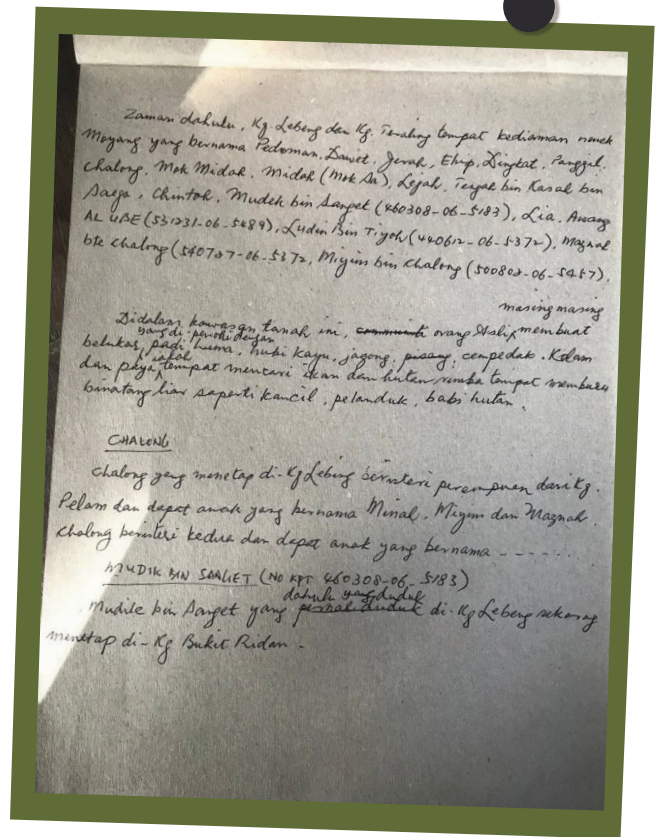 Zaman dahulu, Kg Lebeng dan Kg. Teraling tempat kediaman nenek
Moyang yang bernama Pedoman, Dawet, Jerah, Ehup, Dingkat, Panggil,
Chalong, Mok Midah, Midah (Mok Sa), Lejah, Tengah bin Kasal bin
Saega, Chintoh, Mudek bin Sanget (460308-06-5183), Lia, Awang
AL UBE (531231-06-5489), Ludin Bin Tiyoh (440612-06-5372), Maznah
bte Chalong (540727-06-5372, Miyin bin Chalong (500802-06-5457),
masing masing
Didalam kawasan tanah ini, orang Asli membuat
yang di-penohi dengan
belukar, padi huma, hubi kayu, jagong, pisang, cempedak. Kolam
dan paya, ialah tempat mencari ikan dan hutan rimba tempat memburu
binatang liar saperti kancil, pelanduk, babi hutan.
CHALONG
Chalong yang menetap di-Kg Lebing beristeri perempuan dari Kg.
Pelam dan dapat anak yang bernama Minah, Miyin dan Maznah.
Chalong beristeri kedua dan dapat anak yang bernama - - - - - -
MUDIK BIN SANGET (NO KPT 460308-06-5183)
dahulu yang duduk
Mudik bin Sanget yang pernah duduk di-Kg Lebeng sekarang
menetap di-Kg Bukit Ridan.